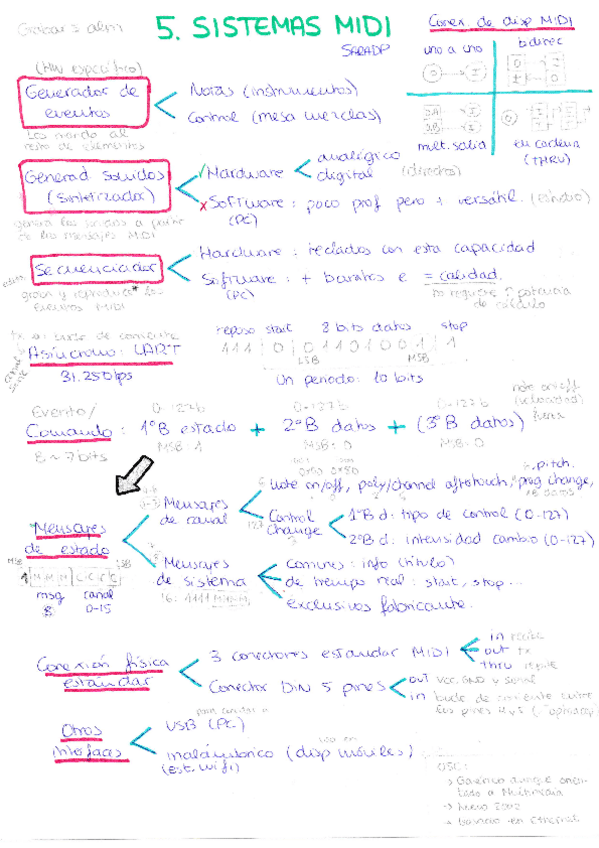 Grabar ≠ alm
5. SISTEMAS MIDI
SARADP
Conex. de disp MIDI
uno a uno
bidirec
mult. salida
en cadena
(THRU)
(HW específico)
Generador de
eventos
Notas (instrumentos)
Control (mesa mezclas)
resto de elementos
Generad sonidos
(sintetizador)
Hardware
analógico
digital
(directos)
Software : poco prof pero + versátil. (estudio)
(PC)
de los mensajes MIDI
Secuenciador
Hardware : teclados con esta capacidad
Software : + baratos e = calidad.
(PC)
no requiere ↑ potencia
de cálculo
eventos MIDI
reposo start 8 bits datos stop
Asíncrono : UART
31.250bps
111 | 0 | 0 1 1 0 1 0 0 1 | 1
LSB
MSB
Un periodo : 10 bits
Evento/
Comando : 1ºB estado + 2ºB datos + (3ºB datos)
0-127b
0-127b
MSB : 1
MSB : 0
MSB : 0
note on/off
(velocidad)
fuerza
Mensajes
de estado
Mensajes
de canal
Note on/off, poly/channel aftertouch, prog change,
pitch.
Control
change
127
1ºB d : tipo de control (0-127)
2ºB d : intensidad cambio (0-127)
MSB
LSB
1 M M M C C C C
msg canal
8 0-15
Mensajes
de sistema
comunes : info (título)
de tiempo real : start, stop...
exclusivos fabricante.
Conexión física
estándar
3 conectores estándar MIDI
in recibe
out tx
thru repite
Conector DIN 5 pines
out VCC, GND y señal
in bucle de corriente entre
los pines 4 y 5
Otros
interfaces
USB (PC)
inalámbrico (disp móviles)
(Est. wifi)
OSC:
→ Genérico aunque orien-
tado a Multimedia
→ Nuevo 2002
→ basado en Ethernet